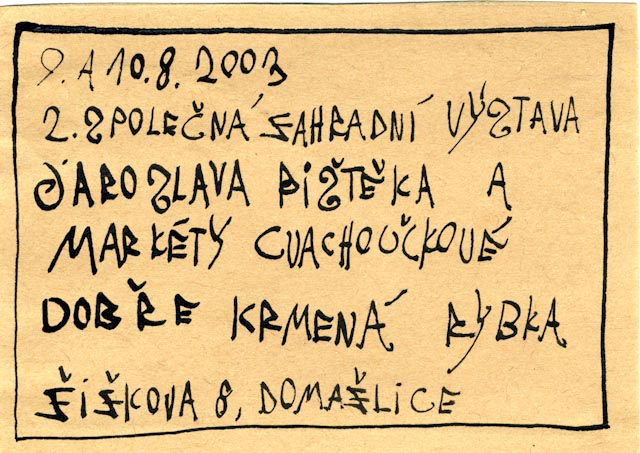 9. A 10.8. 2003
2. SPOLEČNÁ ZAHRADNÍ VÝSTAVA
JAROSLAVA BIŠTĚKA A
MARKÉTY CVACHOUČKOVÉ
DOBŘE KRMENÁ RYBKA
ŽIŽKOVA 8, DOMAŽLICE